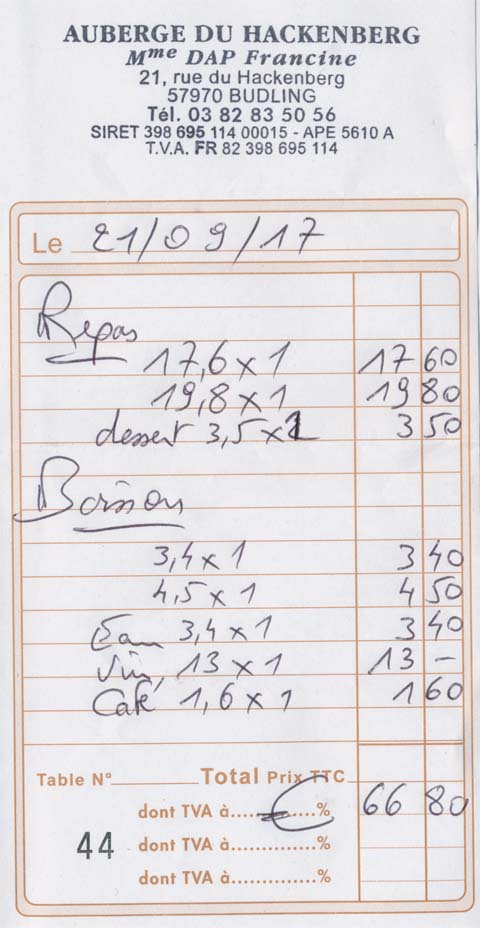 AUBERGE DU HACKENBERG
Mme DAP Francine
21, rue du Hackenberg
57970 BUDLING
Tél. 03 82 83 50 56
SIRET 398 695 114 00015 - APE 5610 A
T.V.A. FR 82 398 695 114
Le 21/09/17
Repas
17,6 x 1 17 60
19,8 x 1 19 80
dessert 3,5 x 1 3 50
Boisson
3,4 x 1 3 40
4,5 x 1 4 50
Eau 3,4 x 1 3 40
Vin, 13 x 1 13 -
Café 1,6 x 1 1 60
Table N° Total Prix TTC
dont TVA à..... € .....% 66 80
44 dont TVA à..............%
dont TVA à..............%